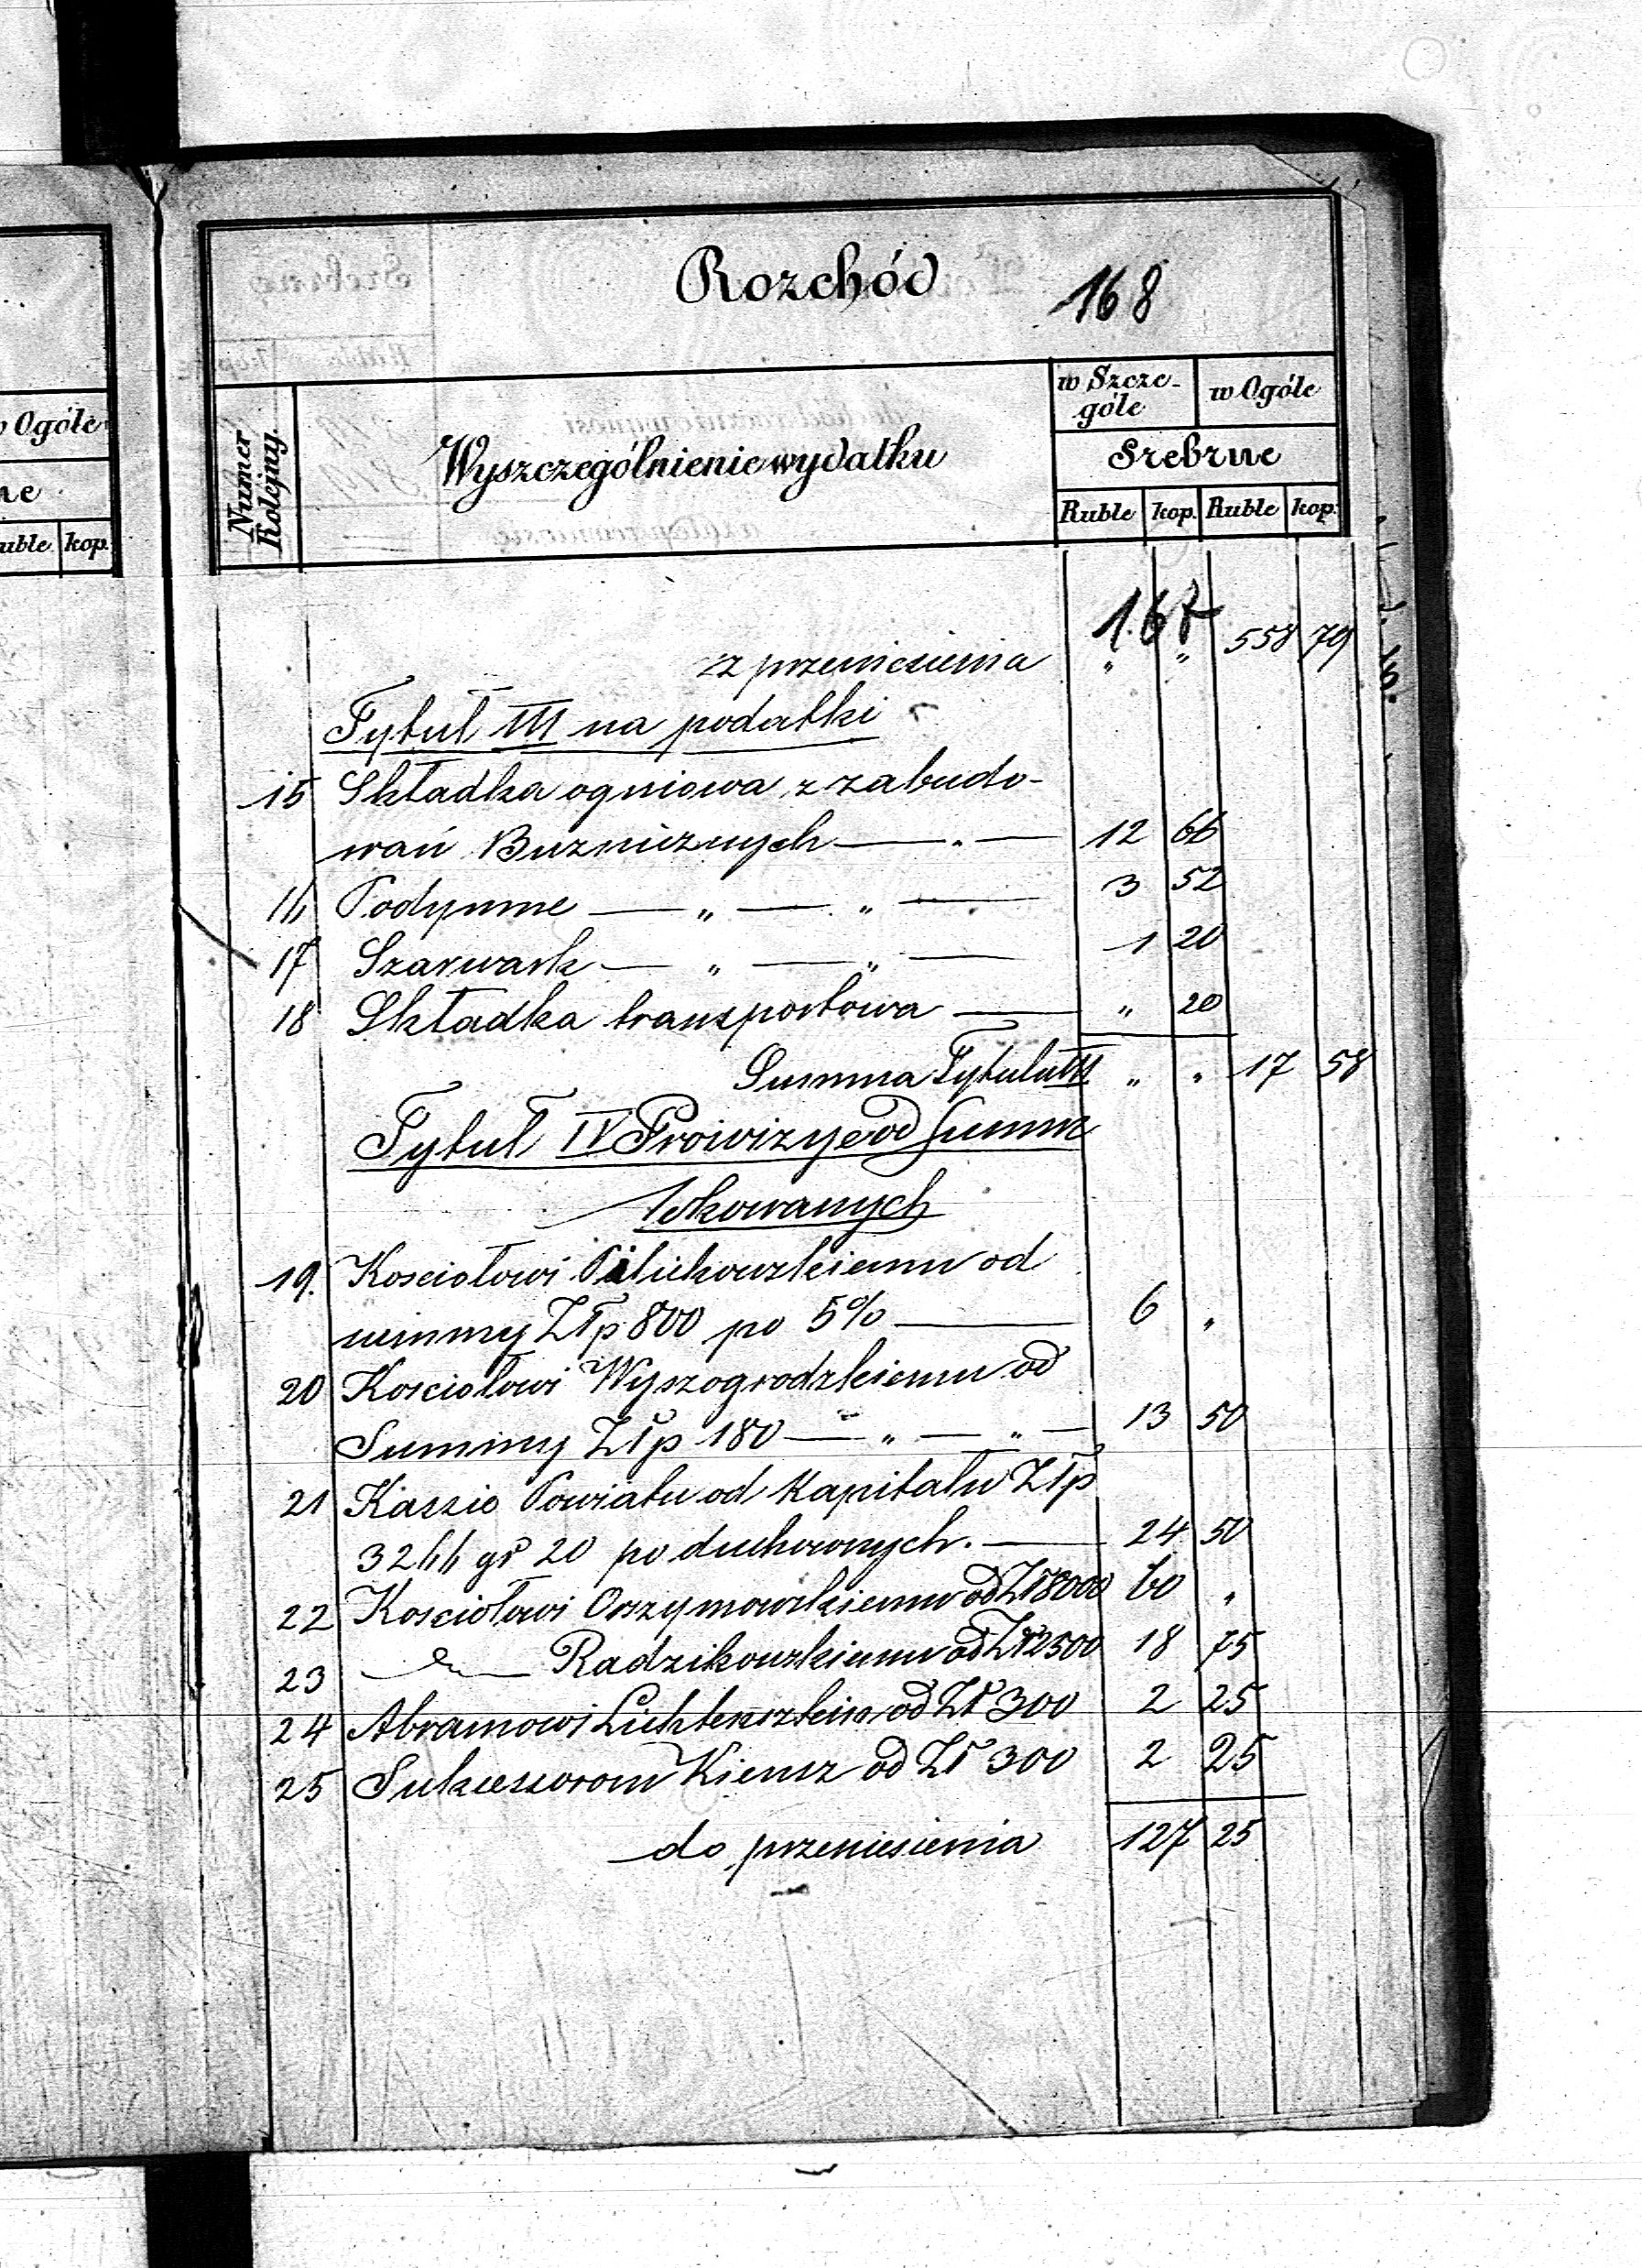 Rozchód 168
w Szcze- w Ogóle
góle
Ogóle
Numer Kolejny.
Wyszczególnienie wydatku
Srebrne
ne
Ruble kop. Ruble kop.
uble kop.
167
z przeniesienia " " 558 79
Tytuł III na podatki
15 Składka ogniowa z zabudo-
wań Buzniiznych — " — 12 66
16 Podymne — " — " — 3 52
17 Szarwark — " — " — 1 20
18 Składka transportowa — " 20
Summa Tytułu III " " 17 58
Tytuł IV Prowizye od Summ
lokowanych
19. Kosciołowi od
summy Złp 800 po 5% — 6 "
20 Kosciołowi Wyszogrodzkiemu od
Summy Złp 180 — " — " — 13 50
21 Kassie Powiatu od Kapitału Złp
3266 gr 20 po duchownych. — 24 50
22 Kosciołowi Orszymowskiemu od Zł 8000 60 "
23 — Radzikowskiemu od Zł 2500 18 75
24 Abramowi Lichtensztein od Zł 300 2 25
25 Sukcessorom Kiensz od Zł 300 2 25
do przeniesienia 127 25